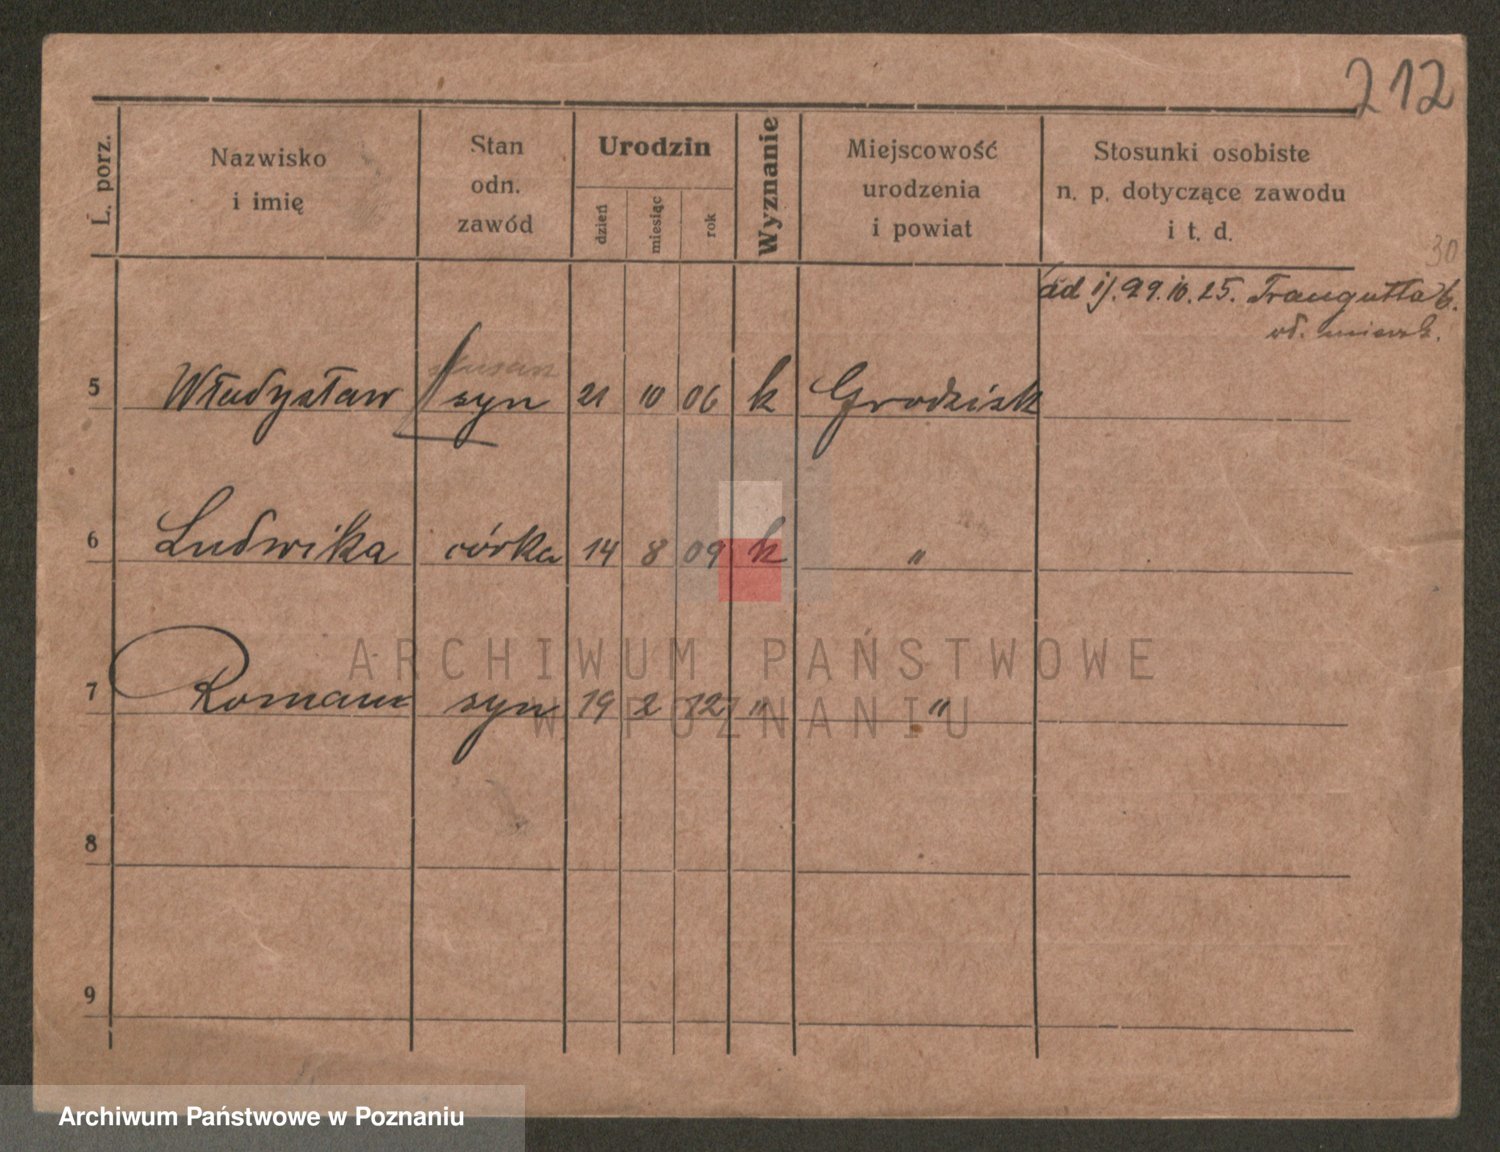 212
L. porz.
Nazwisko
i imię
Stan
odn.
zawód
Urodzin
dzień
miesiąc
rok
Wyznanie
Miejscowość
urodzenia
i powiat
Stosunki osobiste
n. p. dotyczące zawodu
i t. d.
30
ad 1/. 29.10.25. Traugutta
5 Władysław syn 21 10 06 k Grodzisk
6 Ludwika córka 14 8 09 k "
7 Roman syn 19 2 12 " "
8
9
ARCHIWUM PAŃSTWOWE
W POZNANIU
Archiwum Państwowe w Poznaniu